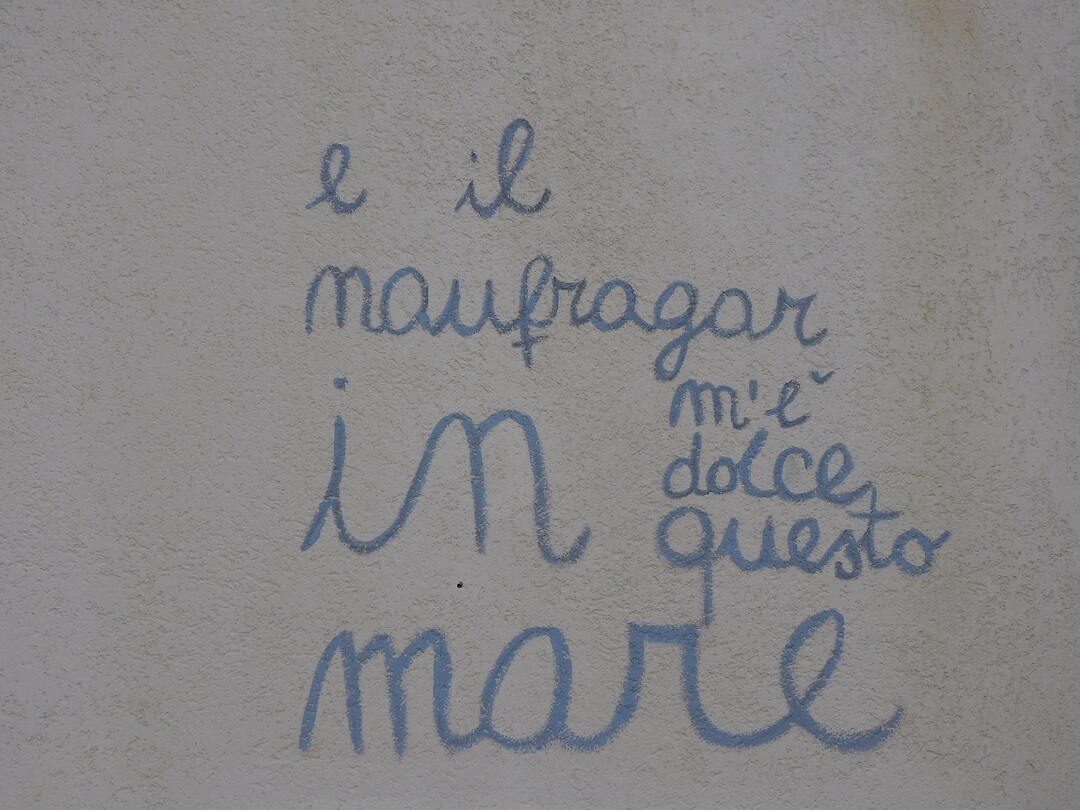 e il
naufragar
m'è
dolce
in questo
mare